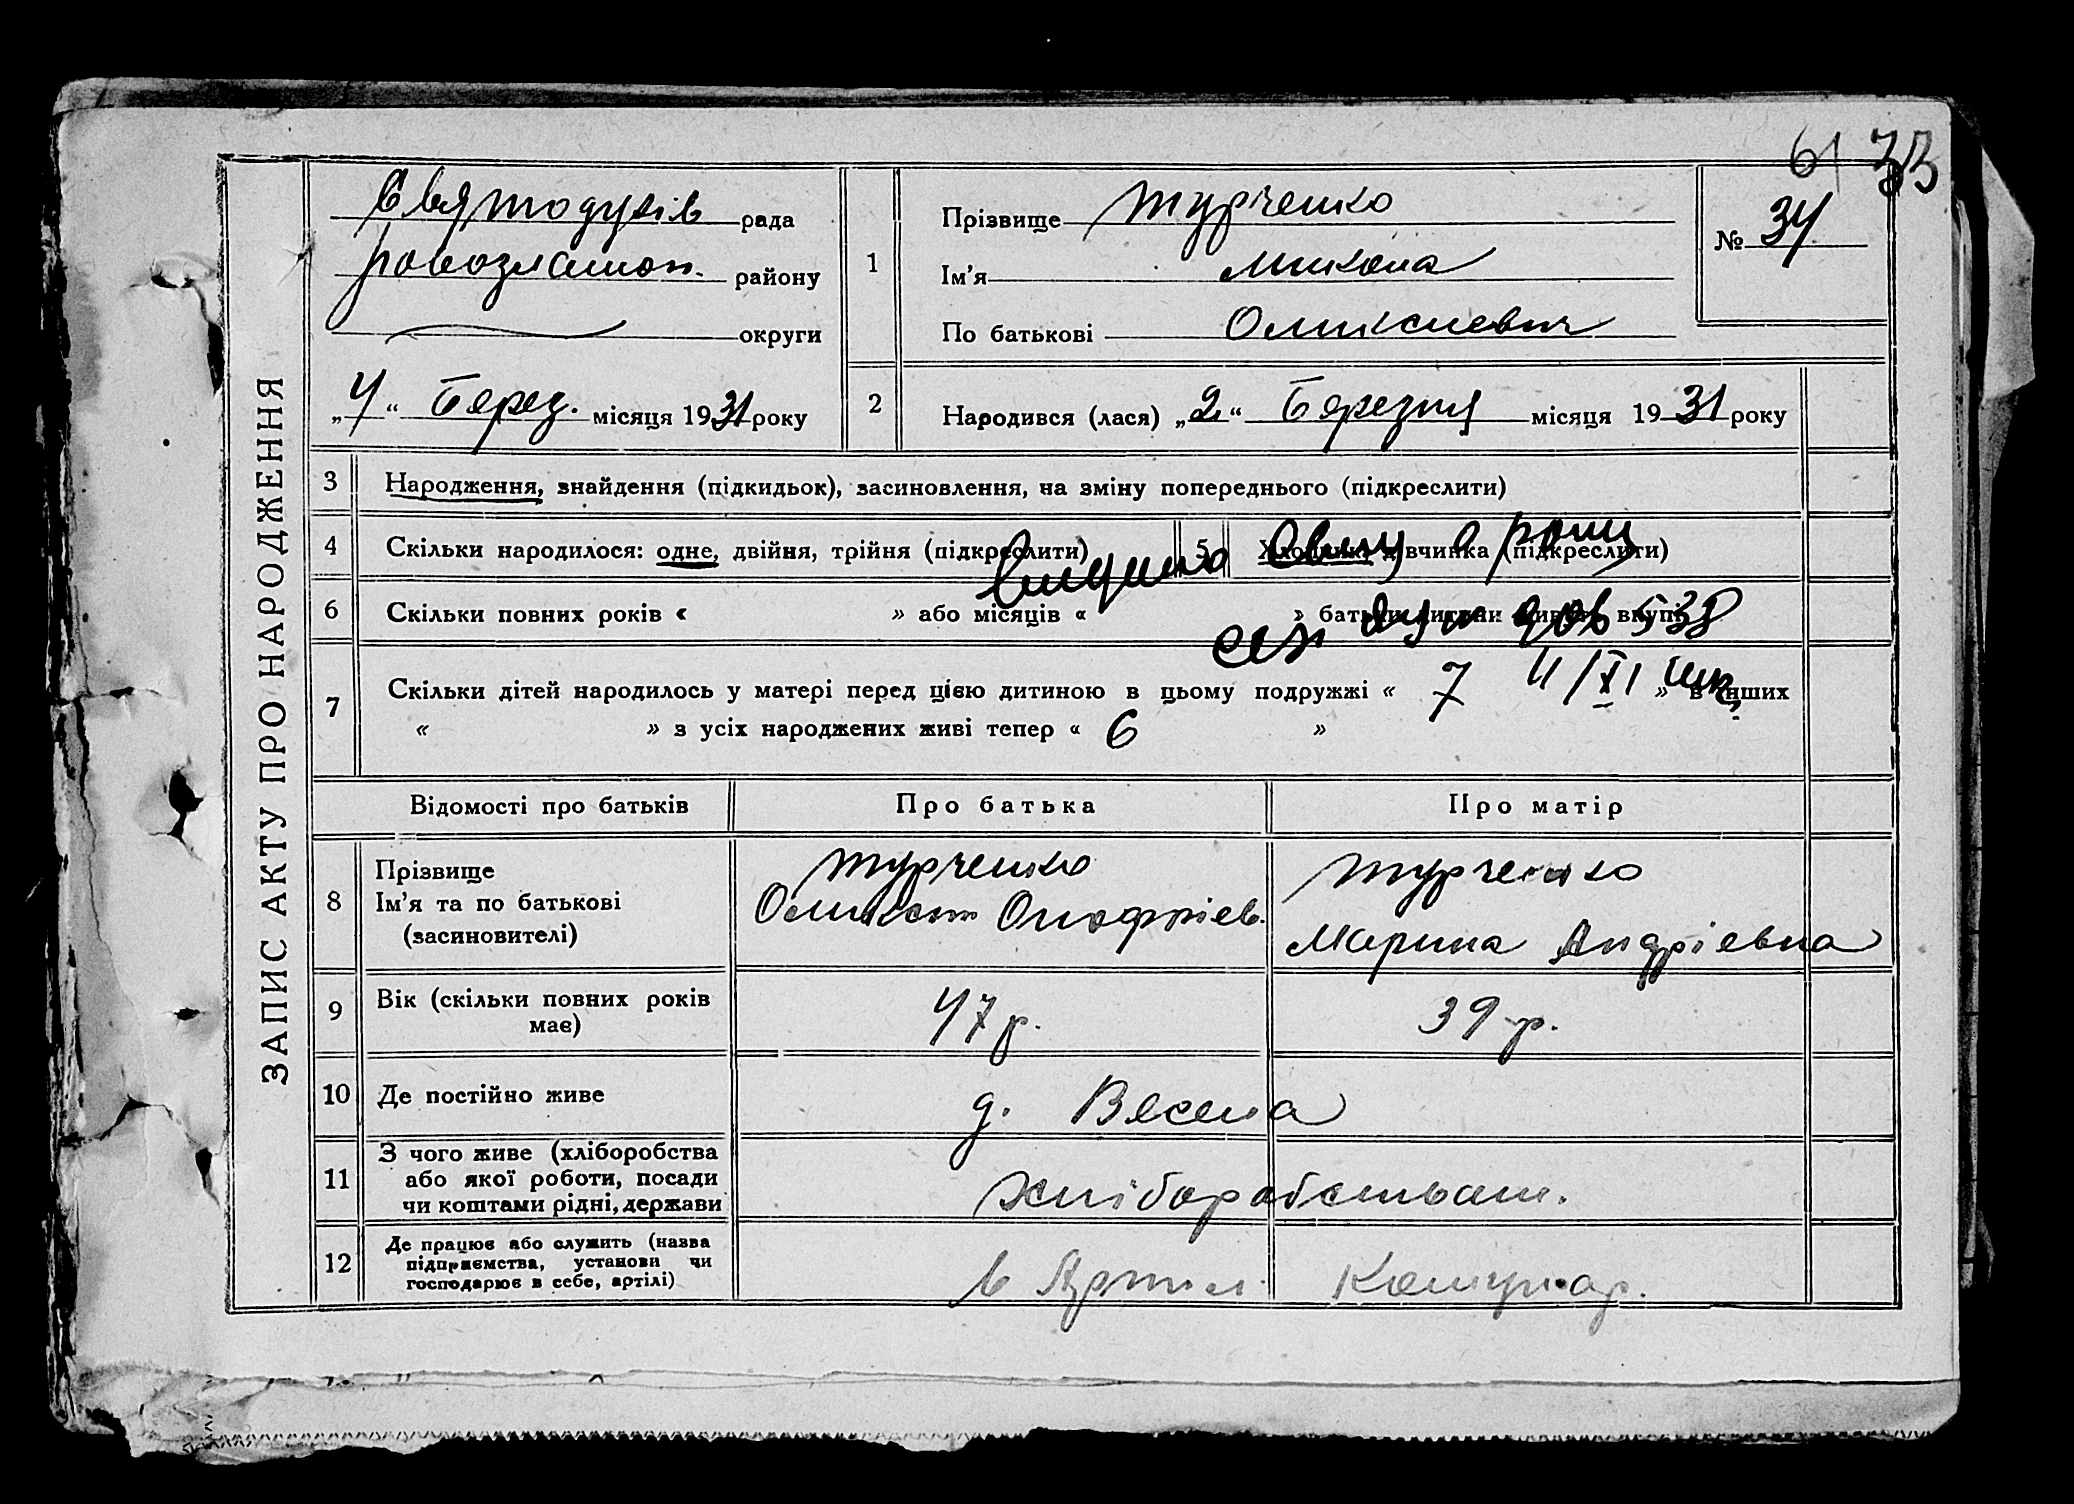 61 33
ЗАПИС АКТУ ПРО НАРОДЖЕННЯ
Святодухів рада
району
округи
„4“ Берез. місяця 1931 року
1
Прізвище Турченко
Ім'я Микола
По батькові Оликсиевич
№ 34
2
Народився (лася) „2“ Березня місяця 1931 року
3 Народження, знайдення (підкидьок), засиновлення, на зміну попереднього (підкреслити)
4 Скільки народилося: одне, двійня, трійня (підкреслити) 5 Хлопчик, дівчинка (підкреслити)
6 Скільки повних років « » або місяців « » батьки дитини живуть вкупі
7 Скільки дітей народилось у матері перед цією дитиною в цьому подружжі « 7 » в інших
« » з усіх народжених живі тепер « 6 »
Відомості про батьків Про батька Про матір
8 Прізвище
Ім'я та по батькові
(засиновителі)
Турченко
Оликсій Онофріев.
Турченко
Марина Андріевна
9 Вік (скільки повних років
має)
47 р. 39 р.
10 Де постійно живе д. Весела
11 З чого живе (хліборобства
або якої роботи, посади
чи коштами рідні, держави
хліборобством.
12 Де працює або служить (назва
підприємства, установи чи
господарює в себе, артілі)
в Артіл. Комунар.